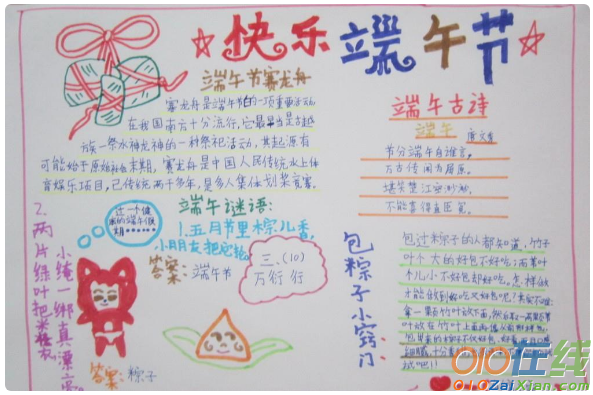 快乐端午节
端午节赛龙舟
赛龙舟是端午节的一项重要活动
在我国南方十分流行,它最早当是古越
族一祭水神龙神的一种祭祀活动,其起源有
可能始于原始社会末期,赛龙舟是中国人民传统水上体
育娱乐项目,已传统两千多年,是多人集体划桨竞赛.
端午古诗
端午
唐文秀
节分端午自谁言,
万古传闻为屈原.
堪笑楚江空渺渺,
不能洗得直臣冤.
端午谜语:
1.五月节里粽儿香,
小朋友把它
答案:端午节
三.(10)
万行 行
2.两片绿叶把米
小绳一绑真漂
答案:粽子
包粽子小窍门
包过粽子的人都知道,竹子
叶个大的好包不好吃;而苇叶
个儿小不好包却好吃,怎样做
才能做到解吃又好包呢?其实不难
拿一
叶放在竹叶上面再
包出来的粽子不仅好包,
010在线
010ZaiXian.com